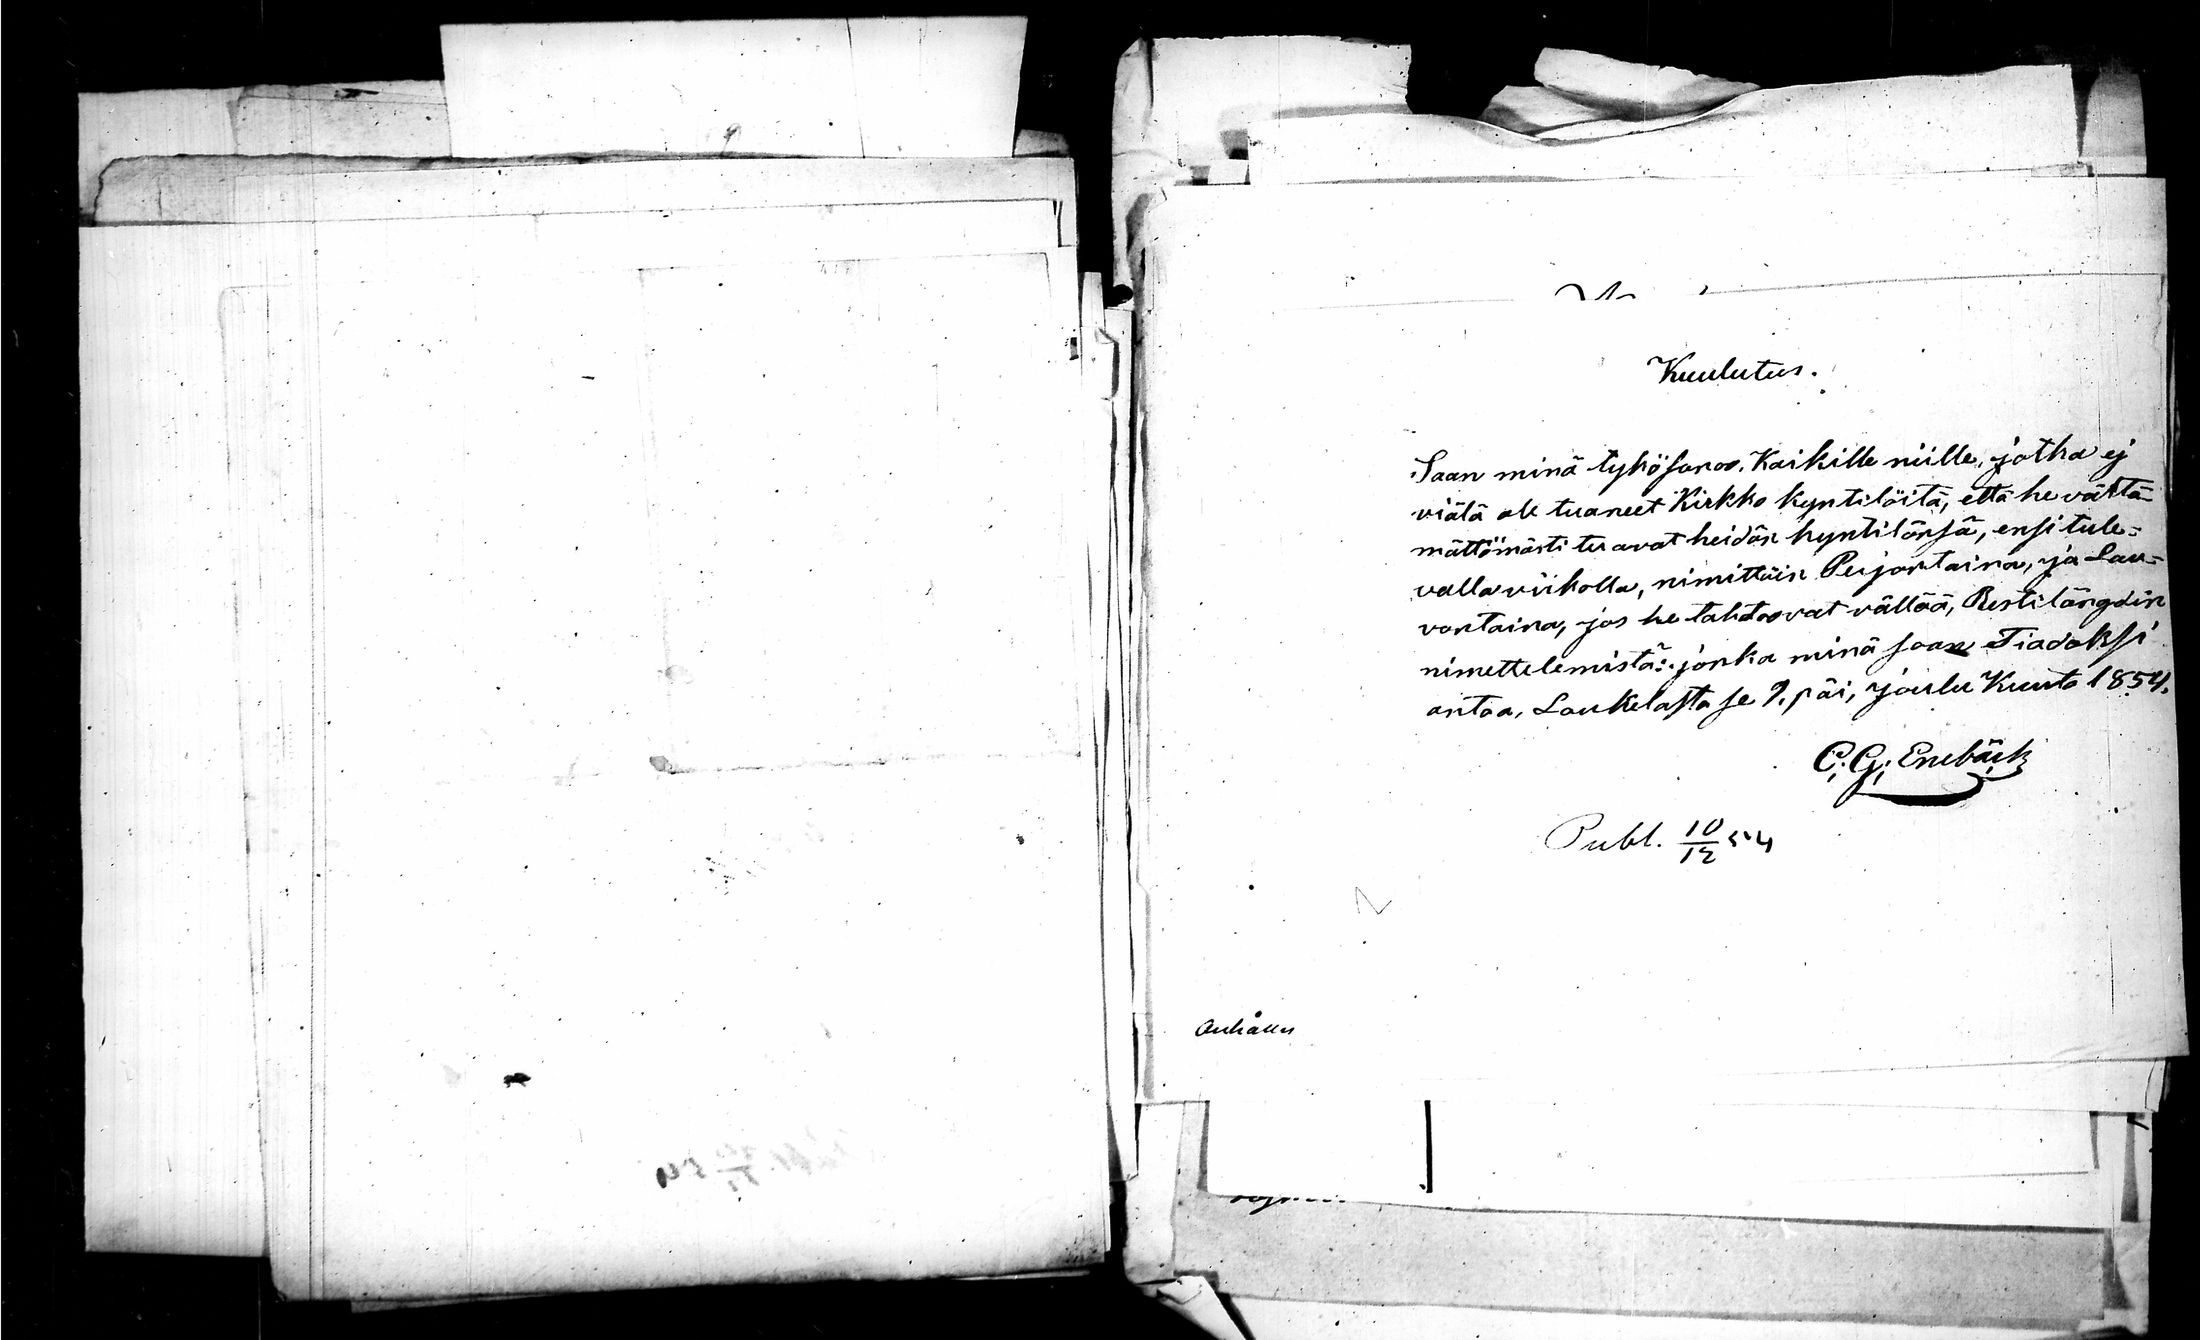 Kuulutus.
Saan minä tykösanoo, Kaikille niille, jotka ej
viälä ole tuaneet Kirkko kyntilöitä, että he vättä-
mättömästi tuavat heidän kyntilänsä, ensi tule=
valla viikolla, nimittäin Perjantaina, ja Lau=
vantaina, jos he tahtoovat välttää, Restilängdin
nimettelemistä: jonka minä saan Tiadoksi
antaa, Laukelasta se 9. päi, joulu Kuuta 1854.
C. G. Enebäck
Publ. 10/12 54